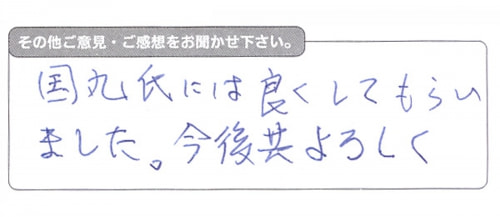 その他ご意見・ご感想をお聞かせ下さい。
国丸氏には良くしてもらい
ました。今後共よろしく